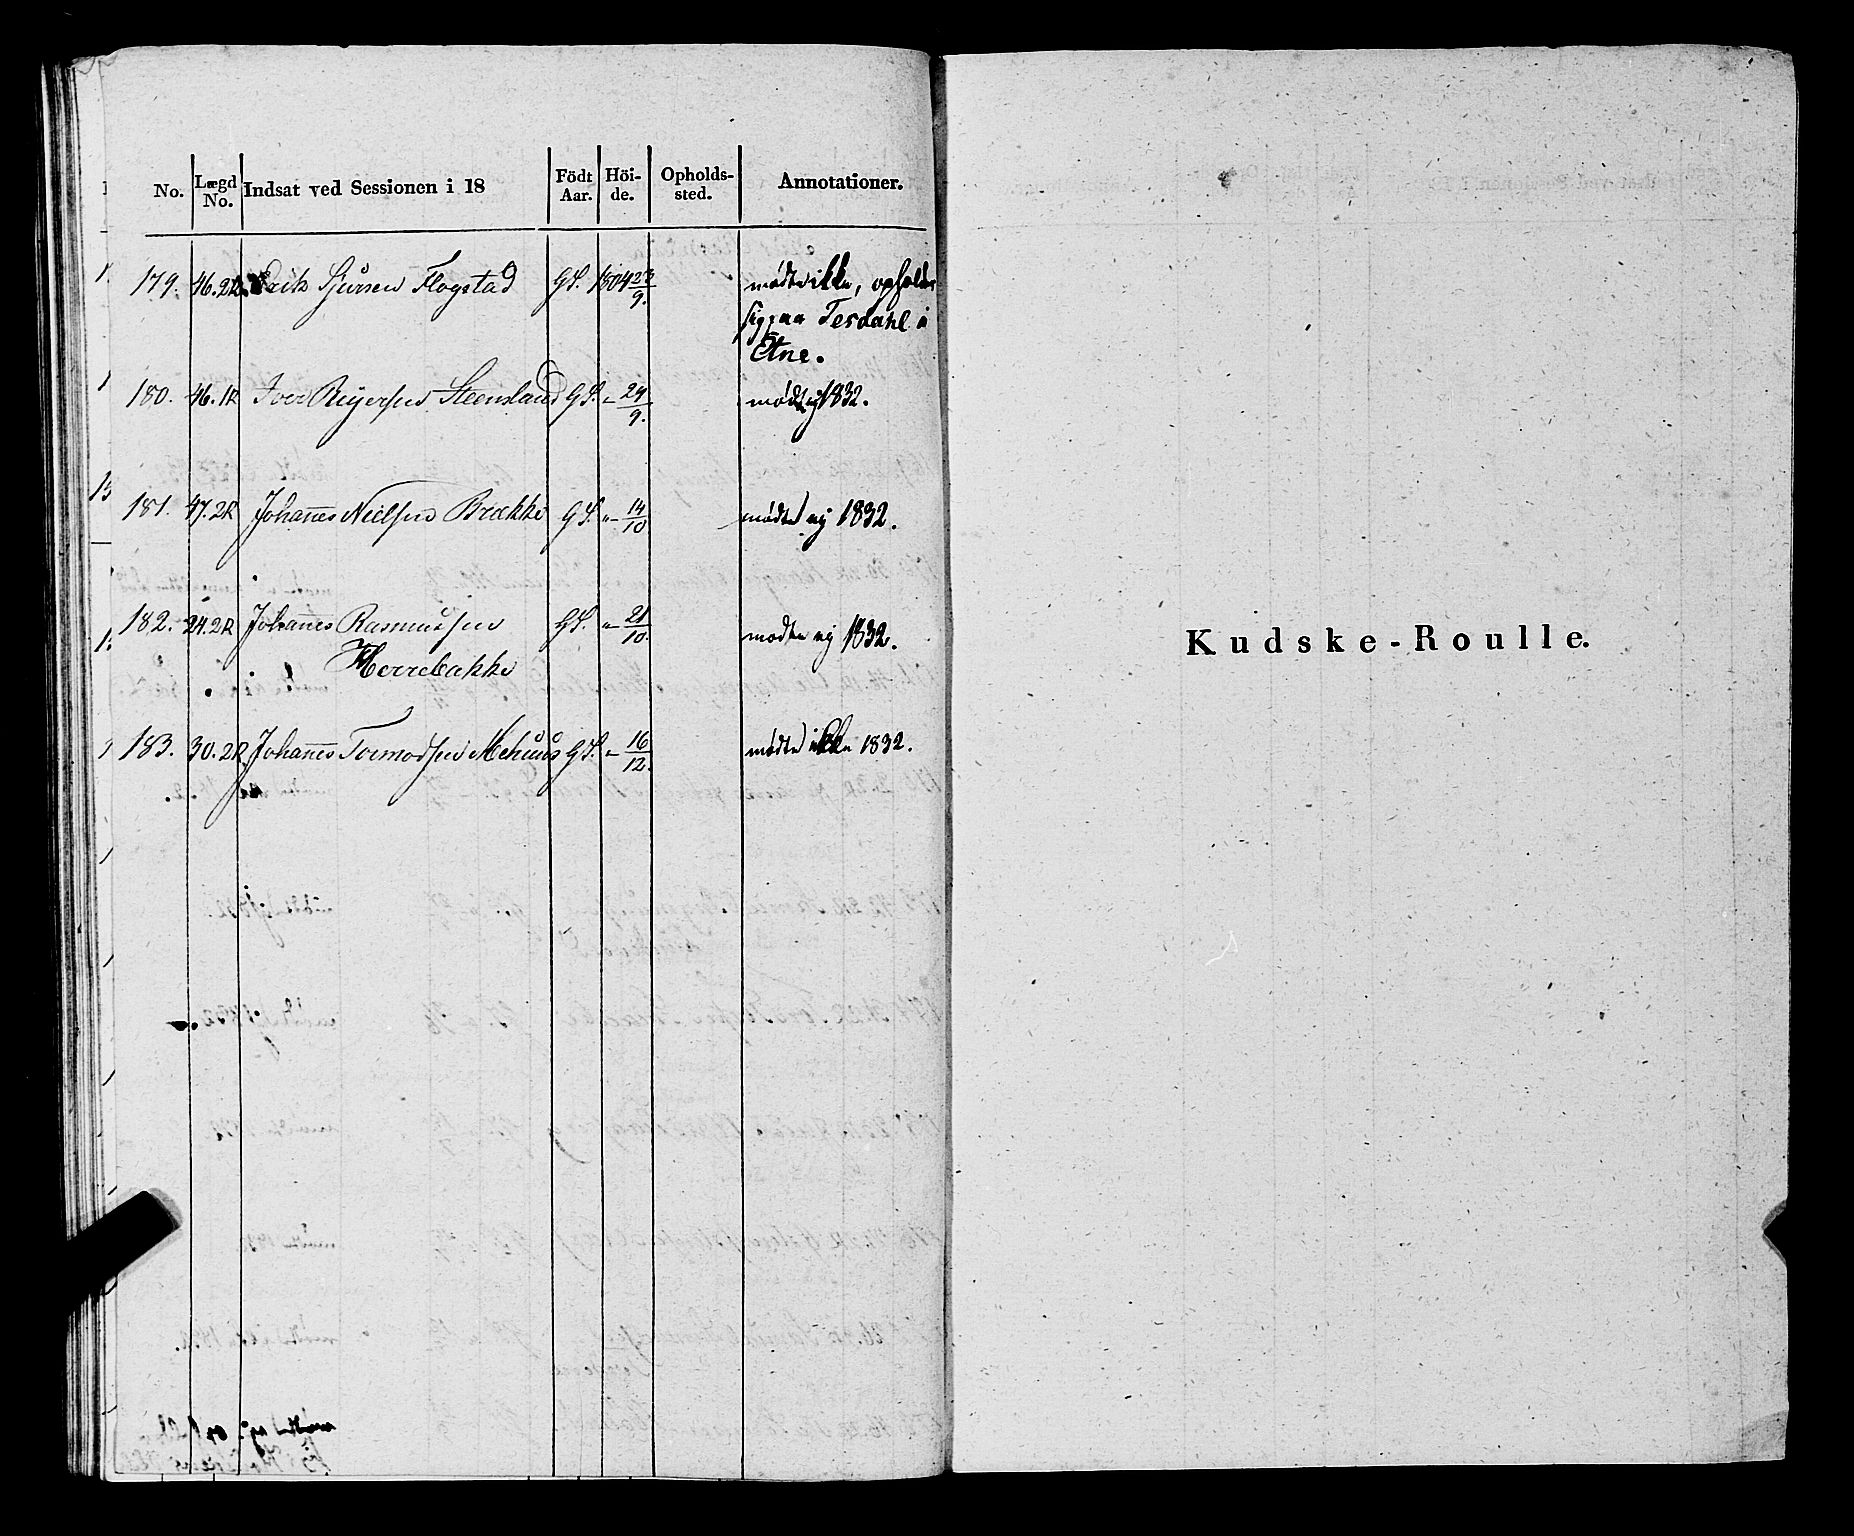 No. Lægd No. Indsat ved Sessionen i 18 Födt Aar. Höi-de. Opholds-sted. Annotationer.
179. 46.2R. Erik Sjursen Flogstad G.S. 1804 23/9. mødte ikke, opholder
sig paa Tesdahl i
Etne.
180. 46.1R Iver Reiersen Steensland G.S. " 24/9. mødt ej 1832.
181. 47.2R Johannes Nielsen Brække G.S. " 14/10 mødte ej 1832.
182. 24.2R Johannes Rasmussen G.S. " 21/10. mødte ej 1832.
Herrebakke
183. 30.2R. Johannes Tormodsen Mehuus G.S. " 16/12. mødte ikke 1832.
Kudske-Roulle.